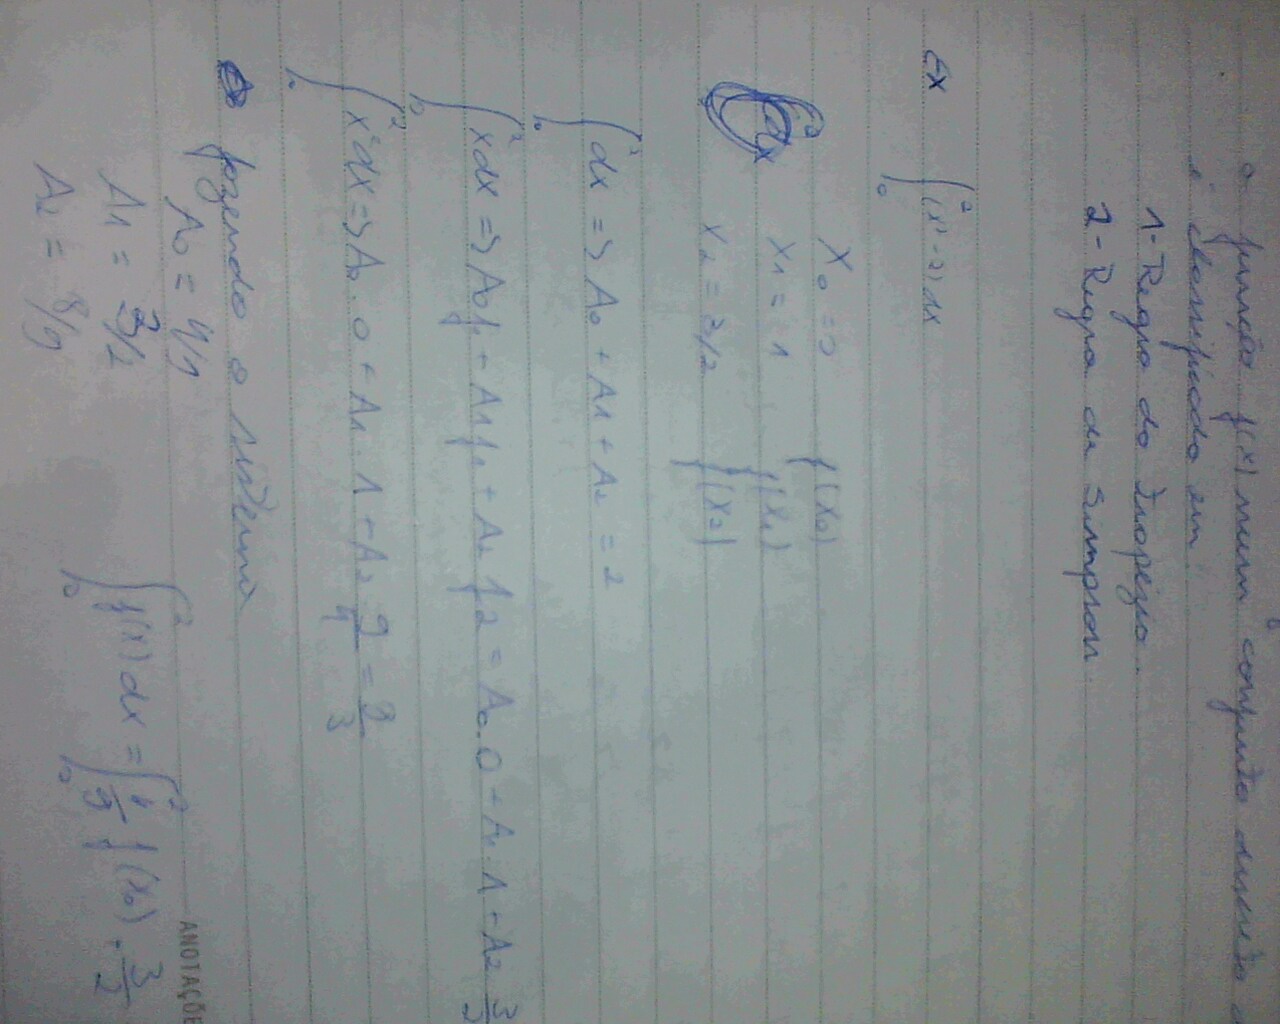 a função f(x) num conjunto discreto
é classificado em
1- Regra do Trapézio.
2- Regra de Simpson.
Ex ∫₀² (x² - 2) dx
x₀ = 0 f(x₀)
dx x₁ = 1 f(x₁)
x₂ = 3/2 f(x₂)
∫₀² dx => A₀ + A1 + A₂ = 2
∫₀² x dx => A₀f₀ + A1f₁ + A₂f2 = A₀.0 + A₁.1 + A₂ 3/2
∫₀² x² dx => A₀.0 + A1.1 + A₂ 9/4 = 8/3
fazendo o sistema
A₀ = 4/9
A1 = 3/2
A₂ = 8/9
∫₀² f(x) dx = ∫₀² 4/9 f(x₀) . 3/2
ANOTAÇÕE